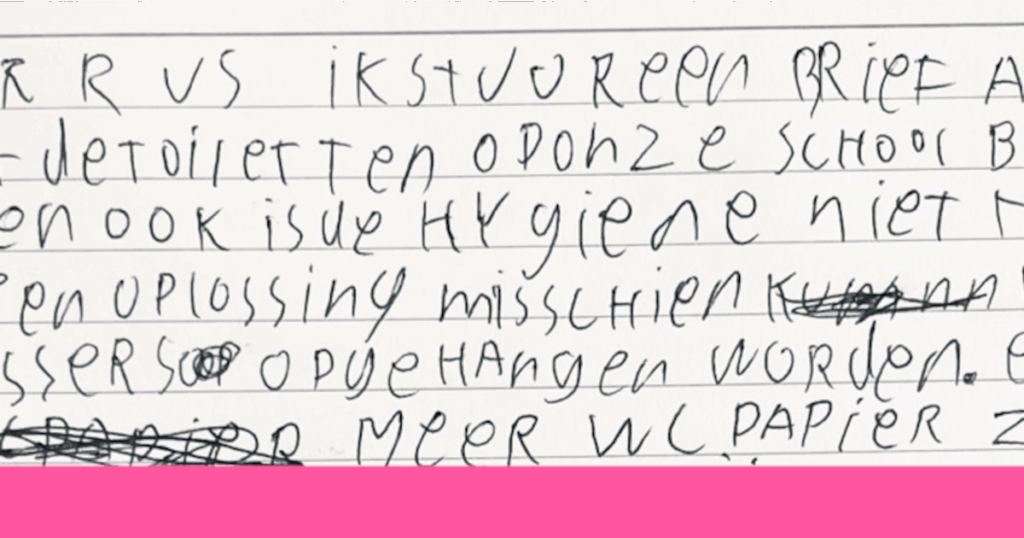 R R US ik stuur een BRief A
detoiletten op onze SCHOOl B
en ook is de HYgiene niet
een oplossing misschien
ssers opgeHAngen worden.
Meer WC PAPieR Z